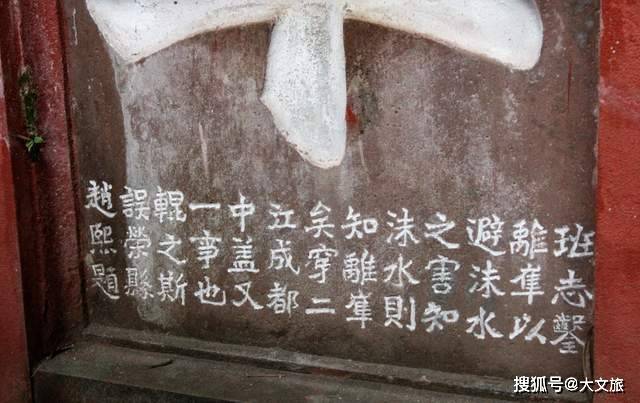 班志鑿
離隼以
避沫水
之害知
沫水則
知離隼
矣穿二
江成都
中盖又
一事也
輥之斯
誤榮縣
趙熙題
搜狐号@大文旅